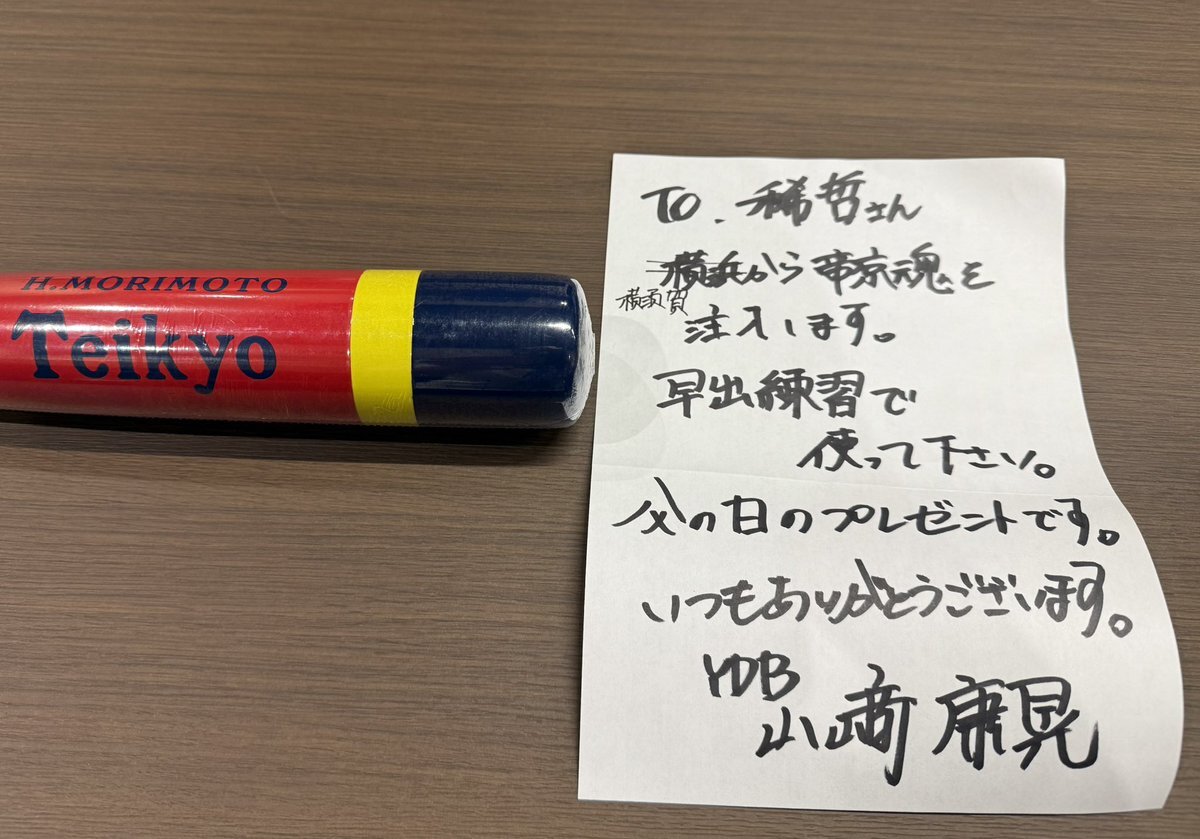 H.MORIMOTO
Teikyo
TO. 稀哲さん
横浜から帝京魂を
横須賀
注入します。
早出練習で
使って下さい。
父の日のプレゼントです。
いつもありがとうございます。
YDB
山﨑康晃